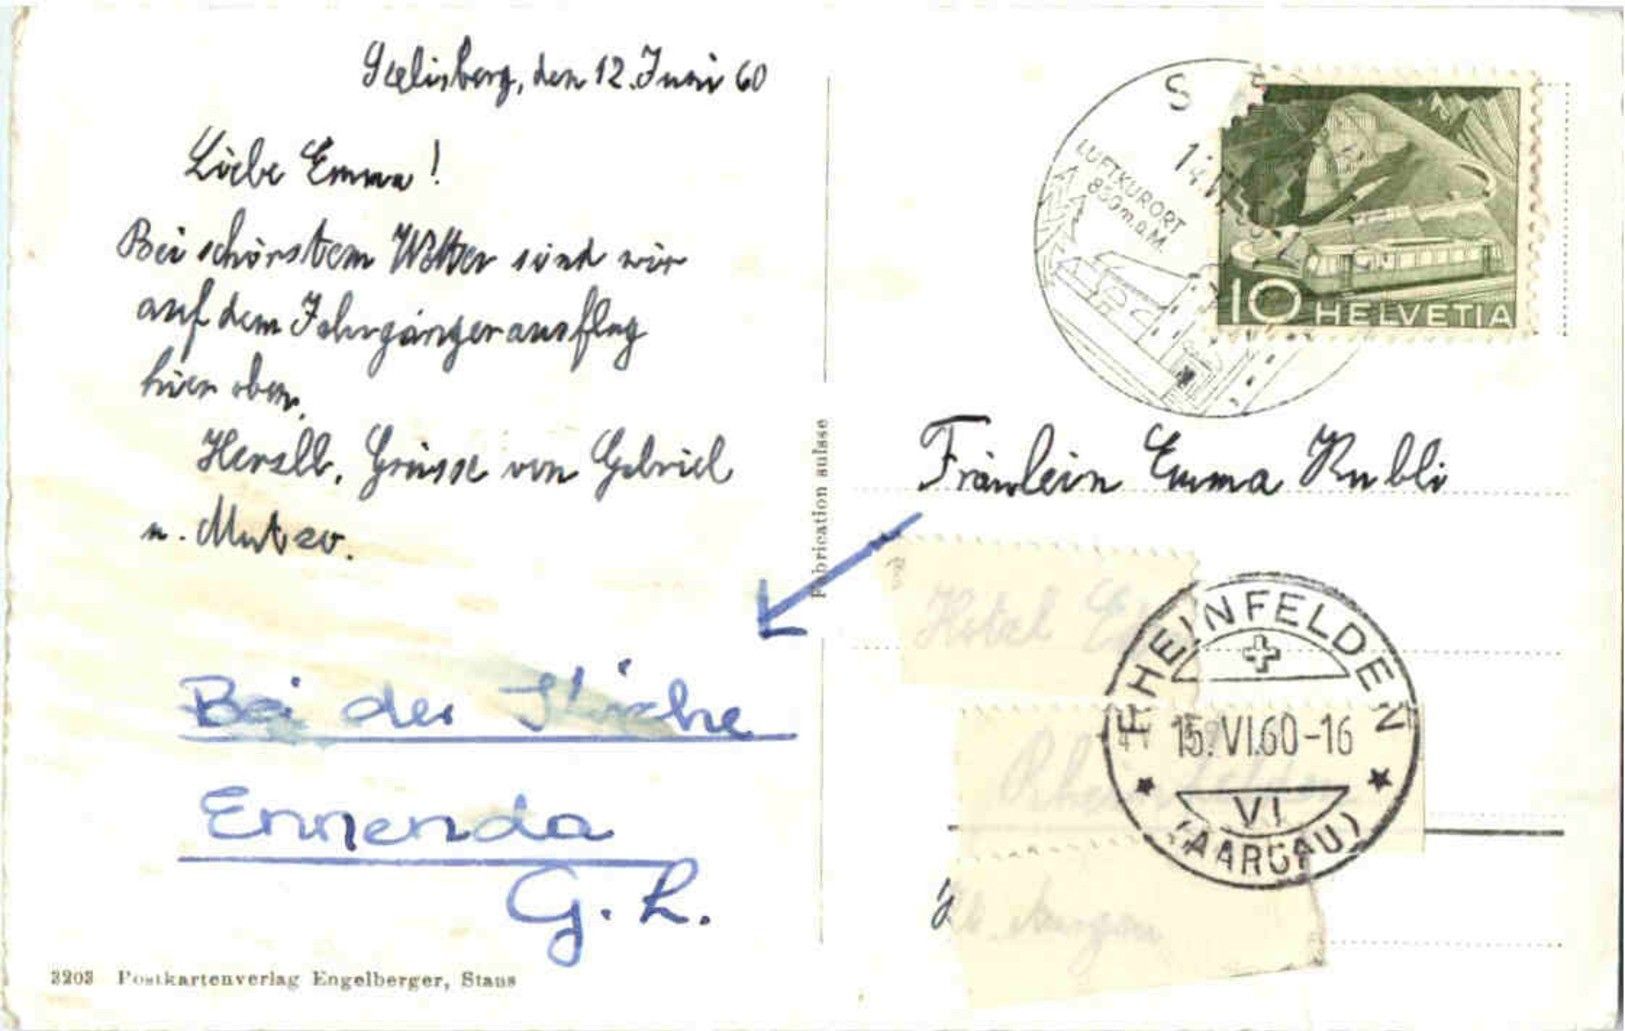 Seelisberg, den 12. Juni 60
Liebe Emma!
Bei schönstem Wetter sind wir
auf dem Jahrgängerausflug
hier oben.
Herzll. Grüsse von Gabriel
u.
Bei der Kirche
Ennenda
G.L.
3203 Postkartenverlag Engelberger, Stans
Fabrication suisse
S
LUFTKURORT
850 m.ü.M.
10 HELVETIA
Fräulein Emma Kubli
Hotel
Rheinfelden
Kt. Aargau
RHEINFELDEN
15.VI.60-16
VI
(AARGAU)